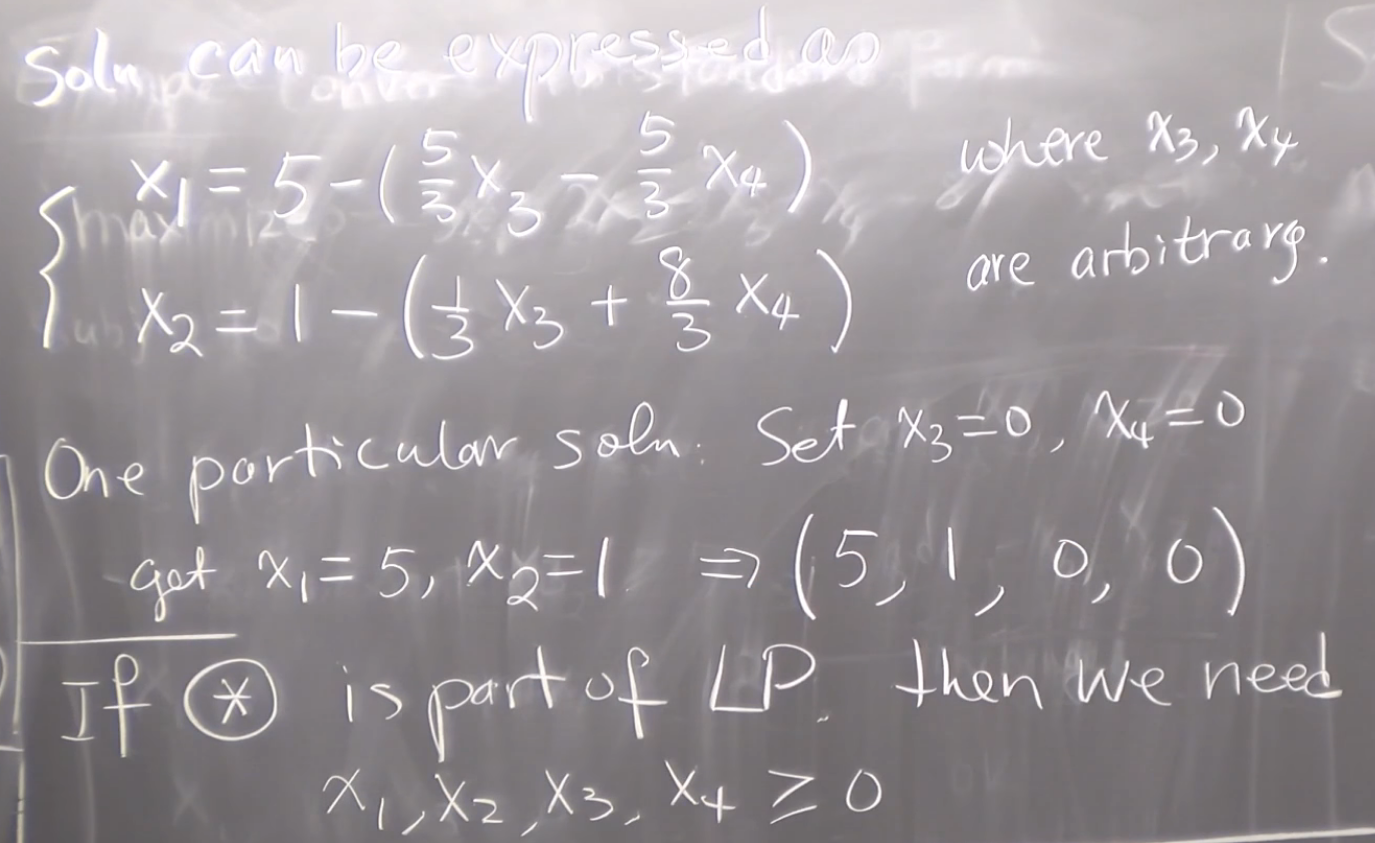 Soln can be expressed as
x₁ = 5 - (5/3 x₃ - 5/3 x₄) where x₃, x₄
x₂ = 1 - (1/3 x₃ + 8/3 x₄) are arbitrary.
One particular soln: Set x₃=0, x₄=0
get x₁=5, x₂=1 ⇒ (5, 1, 0, 0)
If ⊛ is part of LP. then we need
x₁, x₂, x₃, x₄ ≥ 0